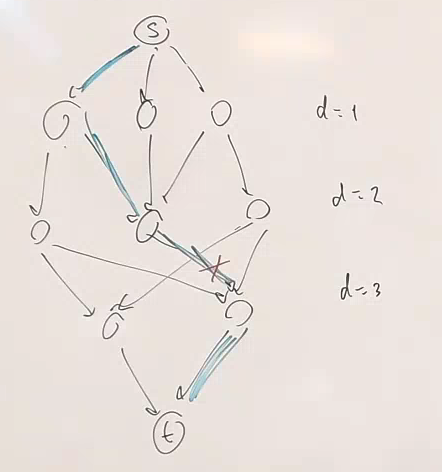 S
d=1
d=2
d=3
t